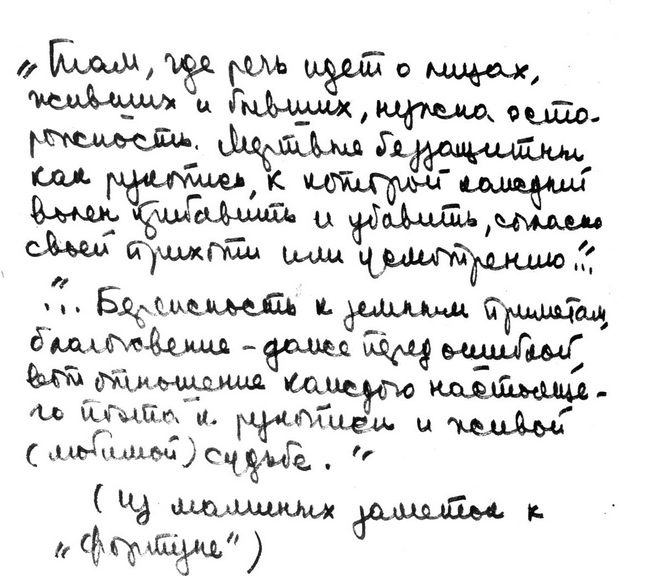 „Там, где речь идет о лицах,
живших и бывших, нужна осто-
рожность. Мертвые беззащитны
как рукопись, к которой каждый
волен прибавить и убавить, согласно
своей прихоти или усмотрению..."
"... Бережность к земным приметам,
благоговение – даже перед ошибкой,
вот отношение каждого настояще-
го поэта к рукописи и живой
(любимой) судьбе."
(из машинных заметок к
„Фортуне")